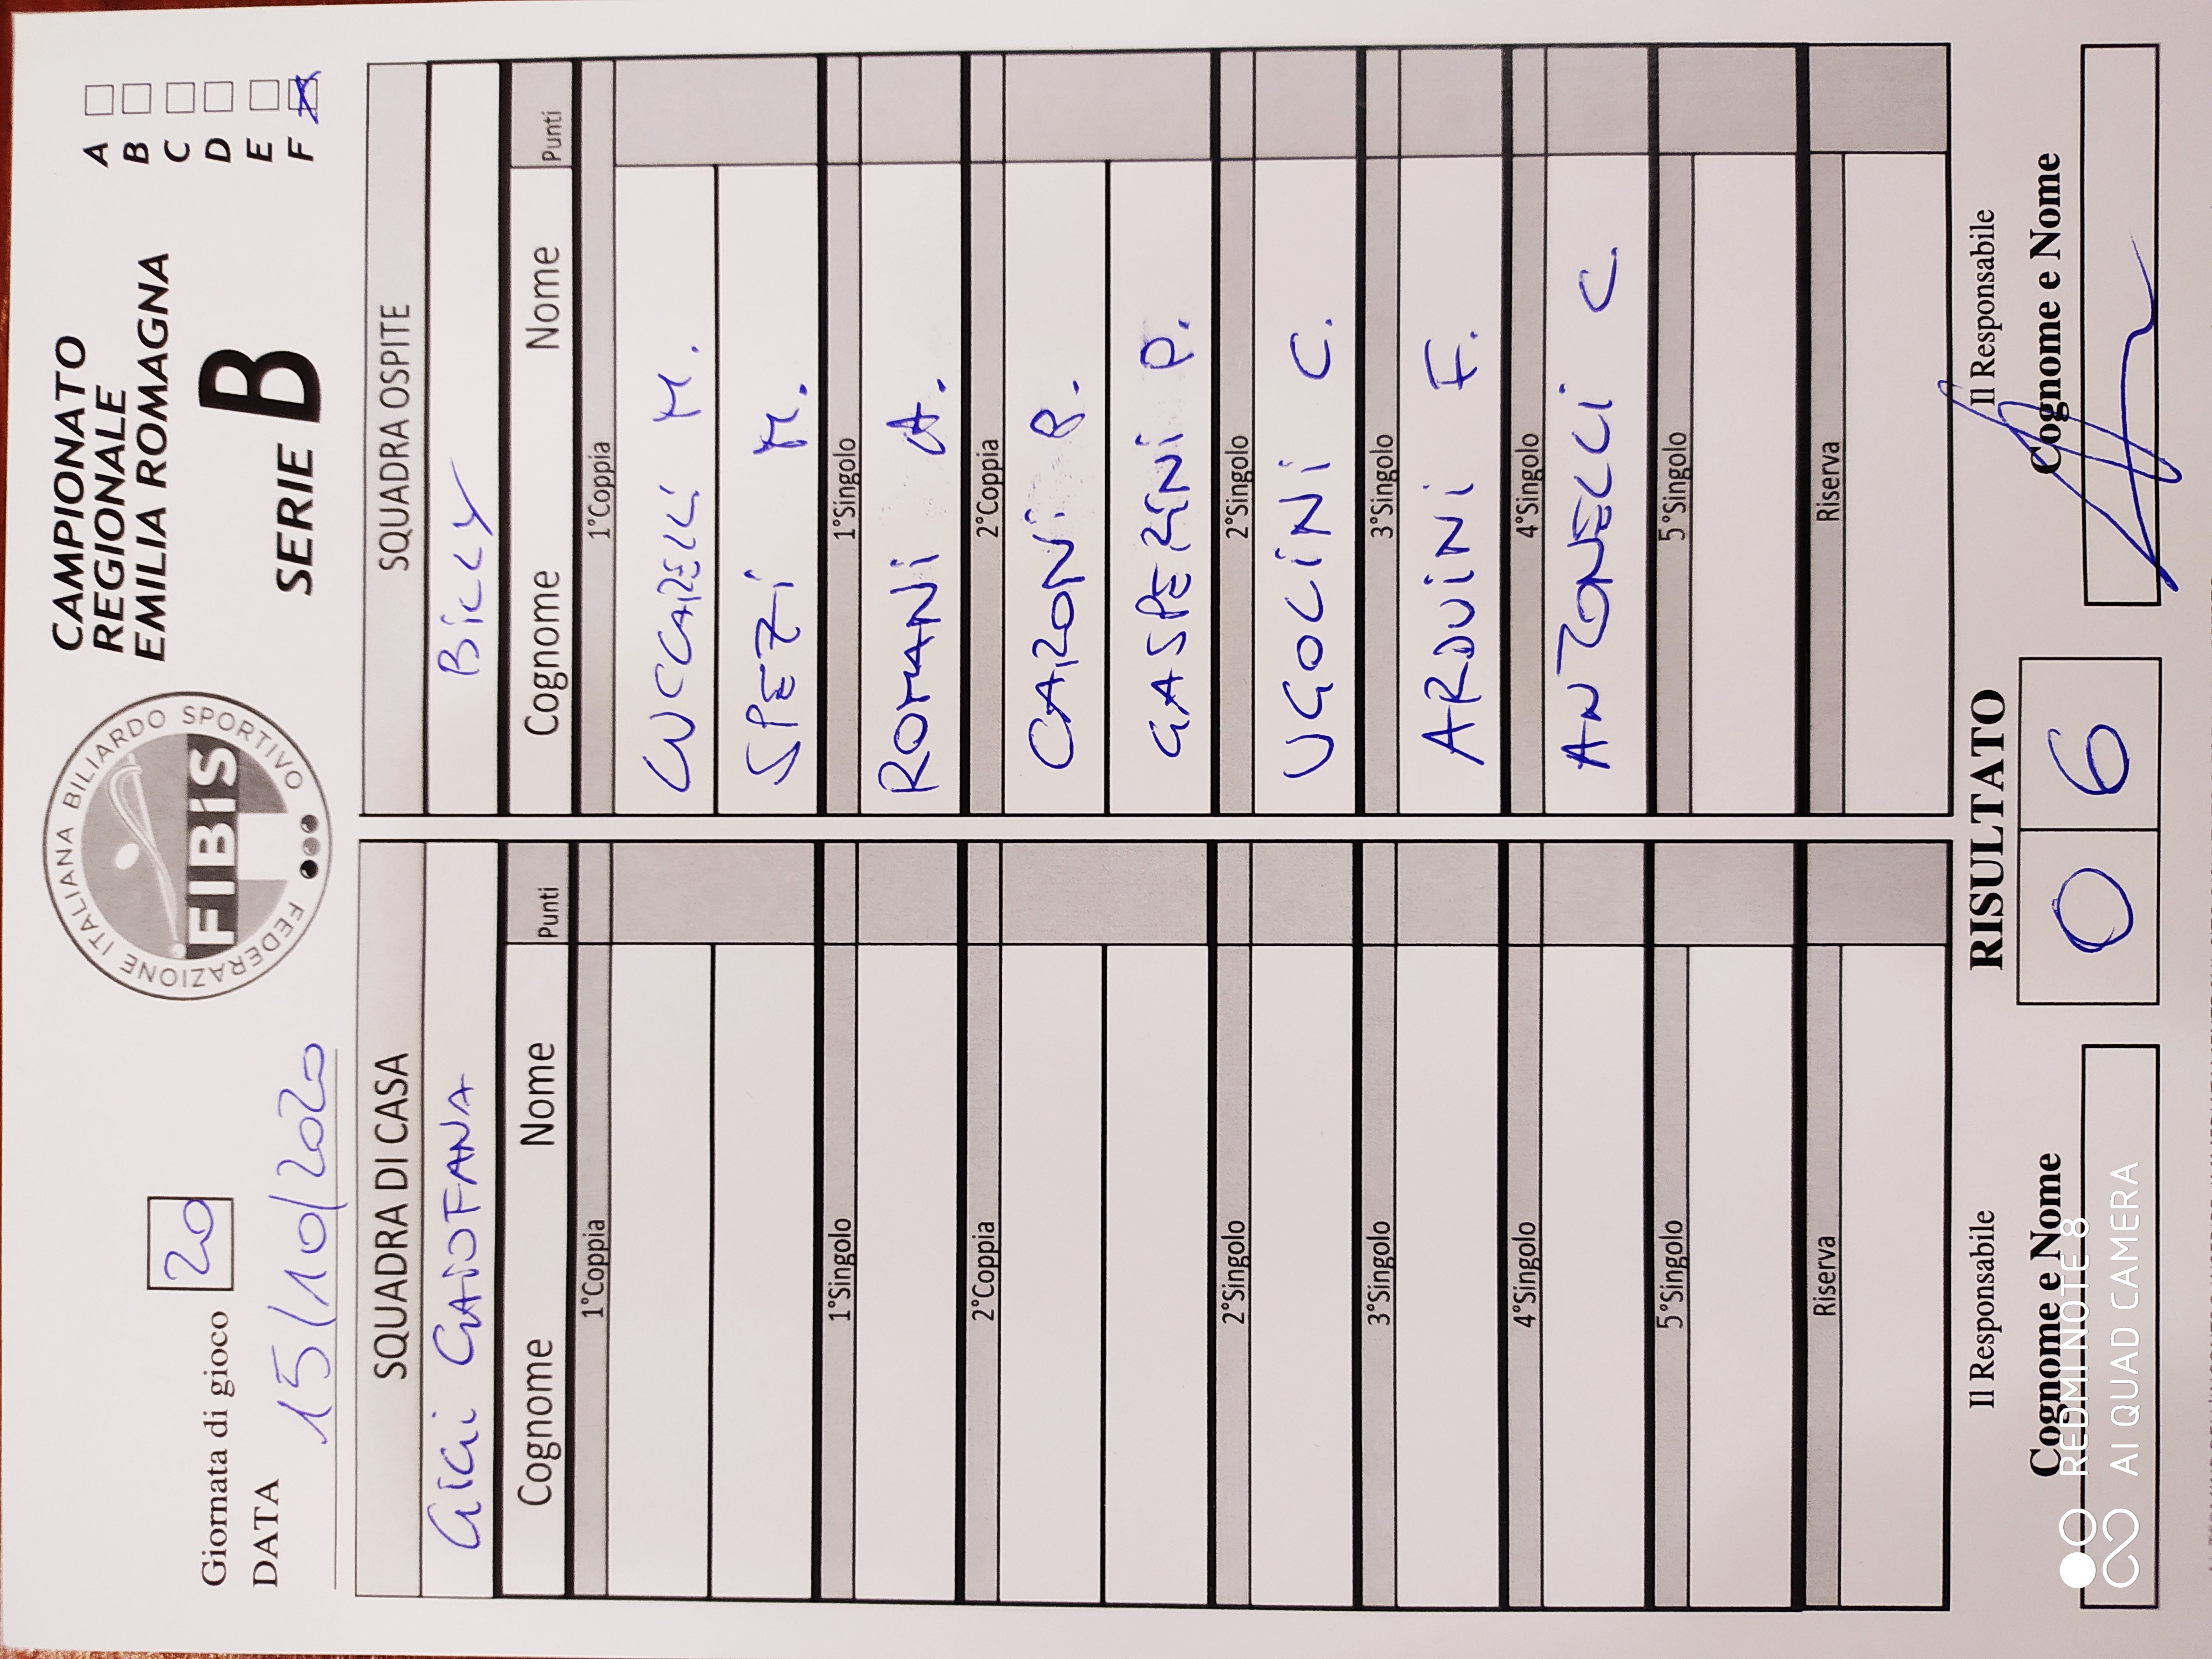 Giornata di gioco 20
DATA 15/10/2020
FEDERAZIONE ITALIANA BILIARDO SPORTIVO
FIBiS
CAMPIONATO
REGIONALE
EMILIA ROMAGNA
SERIE B
A
B
C
D
E
F
SQUADRA DI CASA
SQUADRA OSPITE
BiLLY
Cognome Nome Punti
Cognome Nome Punti
1°Coppia
1°Coppia
LUCCARELLi M.
SPEZi M.
1°Singolo
1°Singolo
ROMANi A.
2°Coppia
2°Coppia
CARONi R.
GASPERiNi P.
2°Singolo
2°Singolo
UGOLiNi C.
3°Singolo
3°Singolo
ARDUiNi F.
4°Singolo
4°Singolo
ANTONELLi C.
5°Singolo
5°Singolo
Riserva
Riserva
Il Responsabile
RISULTATO
Il Responsabile
Cognome e Nome
0 6
Cognome e Nome
REDMI NOTE 8
AI QUAD CAMERA